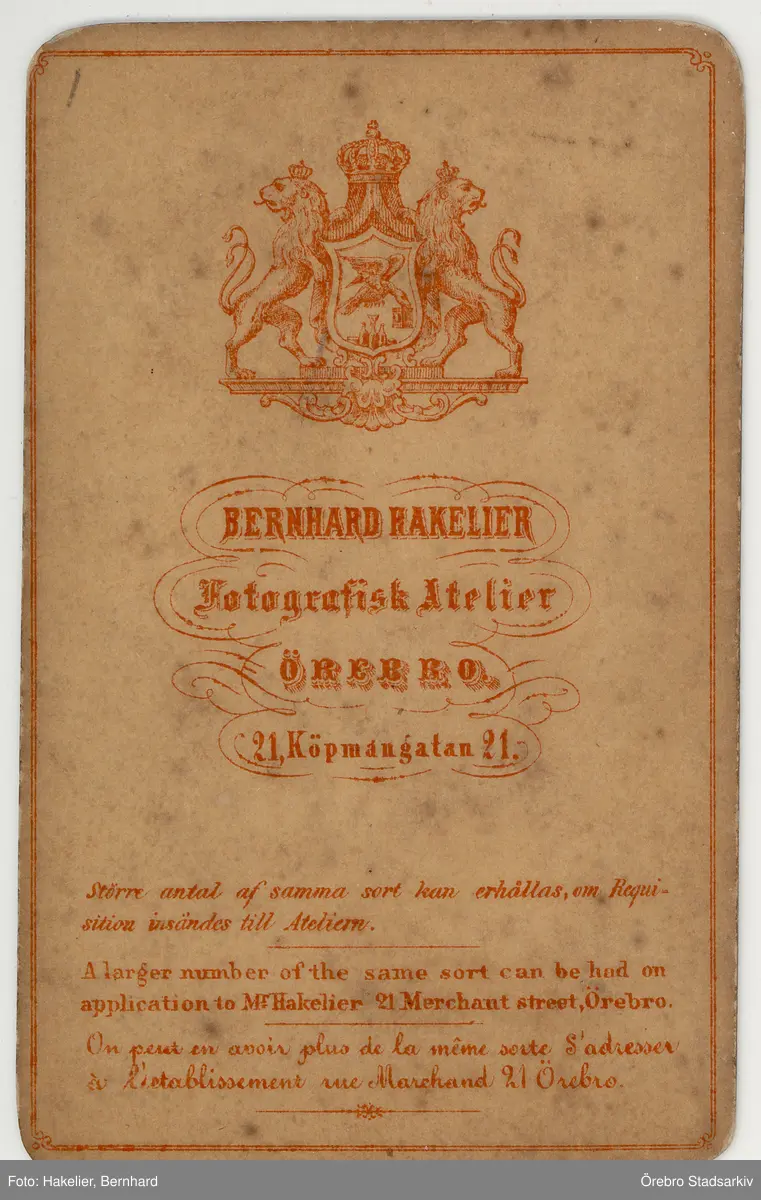 BERNHARD HAKELIER
Fotografisk Atelier
ÖREBRO.
21, Köpmangatan 21.
Större antal af samma sort kan erhållas, om Requi-
sition insändes till Ateliern.
A larger number of the same sort can be had on
application to Mr Hakelier 21 Merchant street, Örebro.
On peut en avoir plus de la même sorte S'adresser
à L'etablissement rue Marchand 21 Örebro.
Foto: Hakelier, Bernhard
Örebro Stadsarkiv